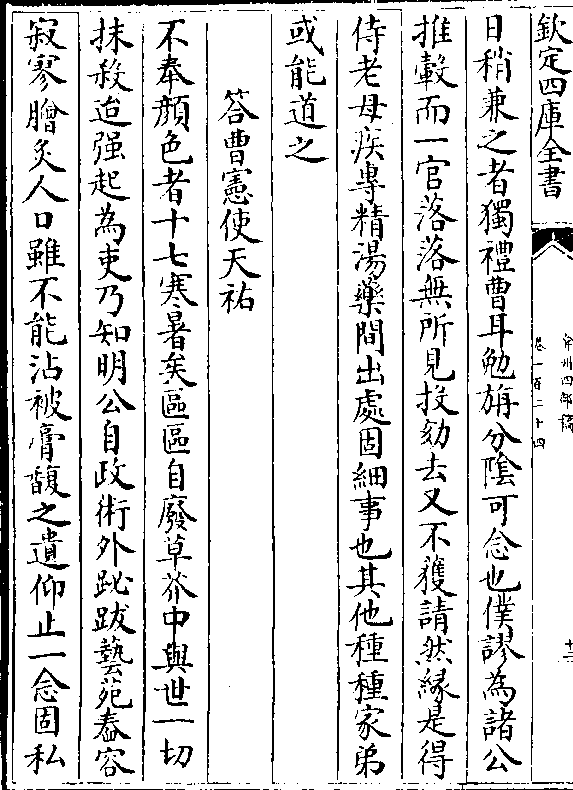 欽定四庫全書
弇州四部稿
卷一百二十四
十三
日稍兼之者獨禮曹耳勉旃分陰可念也僕謬為諸公
推轂而一官落落無所見投劾去又不獲請然緣是得
侍老母疾專精湯藥間出處固細事也其他種種家弟
或能道之
答曹憲使天祐
不奉顔色者十七寒暑矣區區自廢草芥中與世一切
抹殺迨强起為吏乃知明公自政術外跐跋藝苑舂容
寂寥膾炙人口雖不能沾被膏馥之遺仰止一念固私